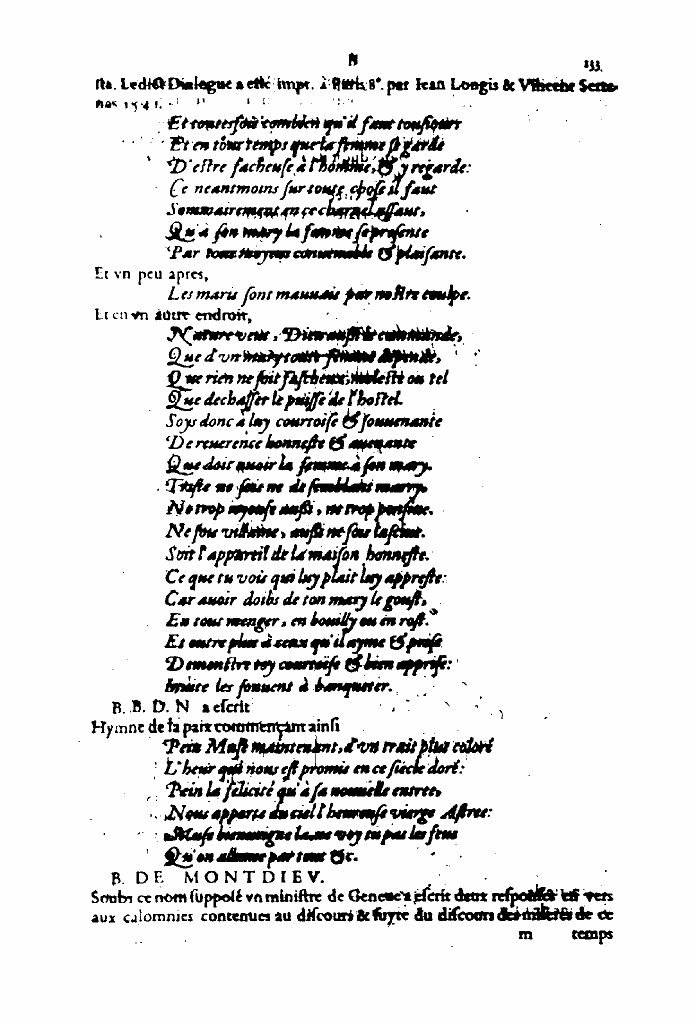 B 133.
sta. Ledict Dialogue a esté impr. à Paris 8°. par Iean Longis & Vincent Serte-
nas 154
Et toutesfois combien qu'il faut tousiours
Et en tous temps que la femme se garde
D'estre facheuse à l'homme, & y regarde:
Ce neantmoins sur toute chose il faut
Sommairement en ce charnel assaut,
Qu'à son mary la femme se presente
Par tous moyens conuenable & plaisante.
Et vn peu apres,
Les maris sont mauuais par nostre coulpe.
Et en vn autre endroit,
Nature veut, Dieu aussi le commande,
Que d'vn mary toute femme depende,
Que rien ne soit fascheux, moleste ou tel
Que dechasser le puisse de l'hostel.
Soys donc à luy courtoise & souuenante
De reuerence honneste & auenante
Que doit auoir la femme à son mary.
Triste ne sois ne de semblant marry,
Ne trop ioyeuse aussi, ne trop pensiue.
Ne sois villaine, aussi ne sois lasciue.
Soit l'appareil de la maison honneste.
Ce que tu vois qui luy plait luy appreste:
Car auoir doibs de ton mary le goust,
En tout menger, en bouilly ou en rost.
Et outre plus à ceux qu'il ayme & prise
Demonstre toy courtoise & bien apprise:
Inuite les souuent à banqueter.
B. B. D. N a escrit
Hymne de la paix commençant ainsi
Pein Muse maintenant, d'vn trait plus coloré
L'heur qui nous est promis en ce siecle doré:
Pein la felicité qu'à sa nouuelle entree,
Nous apporte du ciel l'heureuse vierge Astree:
Muse ne voy tu pas les feus
Qu'on allume par tout &c.
B. DE MONTDIEV.
Soubs ce nom supposé vn ministre de Geneue a escrit deux responses en vers
aux calomnies contenues au discours & suyte du discours des miseres de ce
m temps